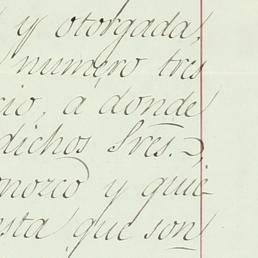 y otorgada,
numero tres
cio, a donde
dichos Sres.
onozco y quie
esta que son